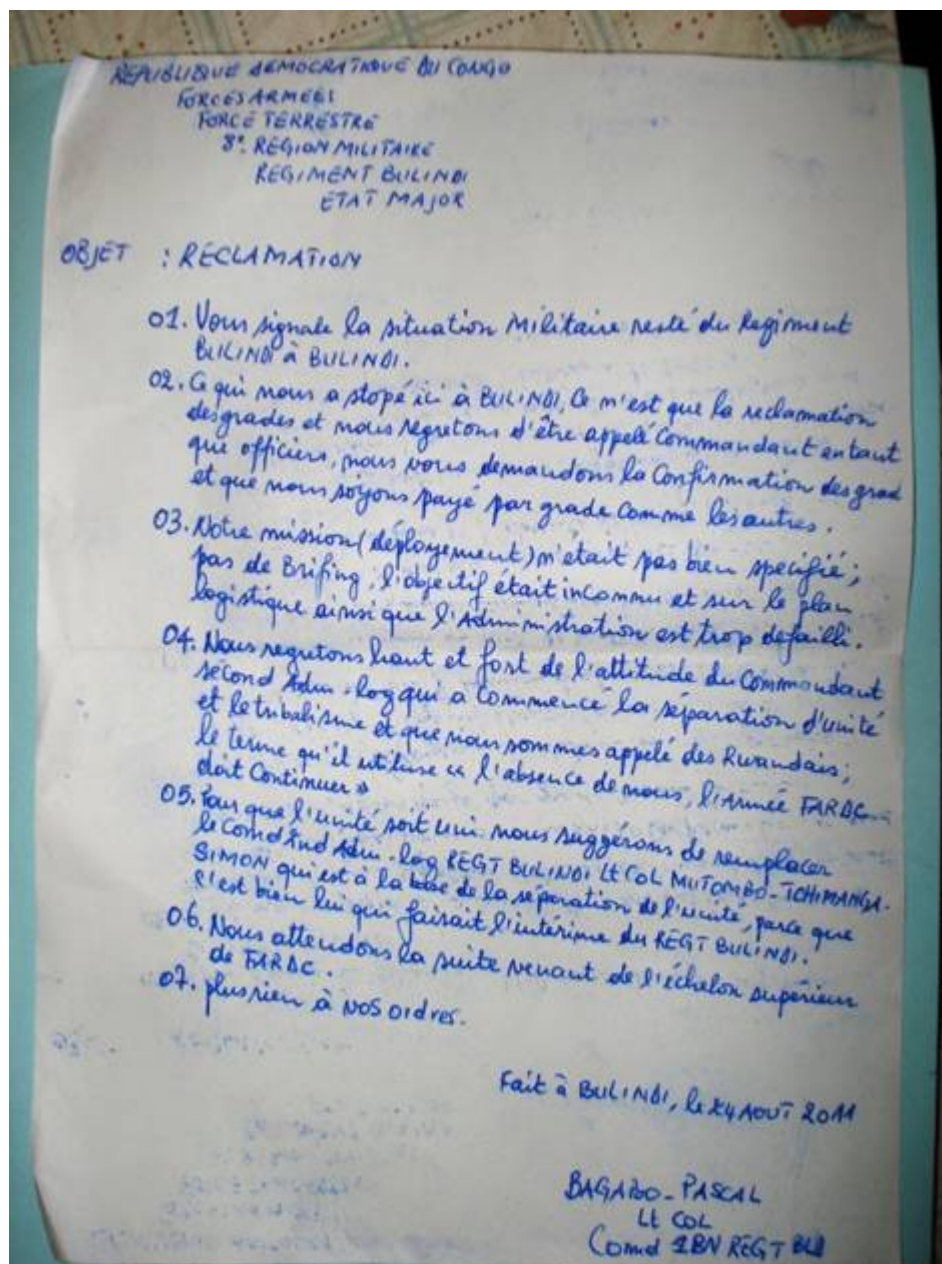 REPUBLIQUE DEMOCRATIQUE DU CONGO
FORCES ARMEES
FORCE TERRESTRE
8e. REGION MILITAIRE
REGIMENT BULINDI
ETAT MAJOR
OBJET : RECLAMATION
01. Vous signale la situation Militaire resté du Regiment
BULINDI à BULINDI.
02. Ce qui nous a stopé ici à BULINDI, Ce n'est que la reclamation
des grades et nous regretons d'être appelé Commandant en tant
que officiers, nous vous demandons la Confirmation des grad
et que nous soyons payé par grade comme les autres.
03. Notre mission (déployement) n'était pas bien specifié;
pas de Brifing, l'objectif était inconnu et sur le plan
logistique ainsi que l'Administration est trop defailli.
04. Nous regretons haut et fort de l'attitude du Commandant
second Adm-log qui a commencé la séparation d'unité
et le tribalisme et que nous sommes appelé des Rwandais;
le terme qu'il utilise « l'absence de nous, l'Armée FARDC
doit Continuer »
05. Pour que l'unité soit uni nous suggérons de remplacer
le Comd 2nd Adm-log REGT BULINDI Lt Col MUTOMBO-TCHIMANGA-
SIMON qui est à la base de la séparation de l'unité, parce que
c'est bien lui qui faisait l'intérime du REGT BULINDI.
06. Nous attendons la suite venant de l'échelon supérieur
de FARDC.
07. plus rien à vos ordres.
Fait à BULINDI, le AOUT 2011
BAGABO-PASCAL
Lt COL
Comd 1BN REGT BUL